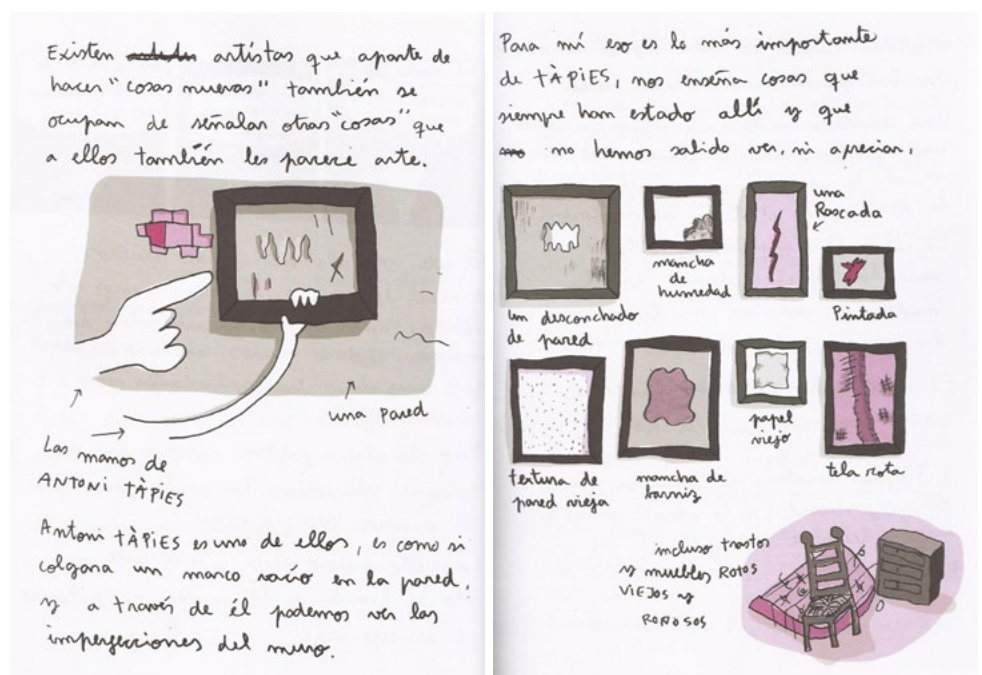 Existen artístas que aparte de
hacer "cosas nuevas" también se
ocupan de señalar otras "cosas" que
a ellos también les parece arte.
una pared
Las manos de
ANTONI TÀPIES
Antoni TÀPIES es uno de ellos, es como si
colgara un marco vacío en la pared,
y a través de él podemos ver las
imperfecciones del muro.
Para mí eso es lo más importante
de TÀPIES, nos enseña cosas que
siempre han estado allí y que
no hemos sabido ver, ni apreciar,
un desconchado
de pared
mancha
de
humedad
una
Rascada
Pintada
textura de
pared vieja
mancha de
barniz
papel
viejo
tela rota
incluso trastos
y muebles ROTOS
VIEJOS y
ROÑOSOS